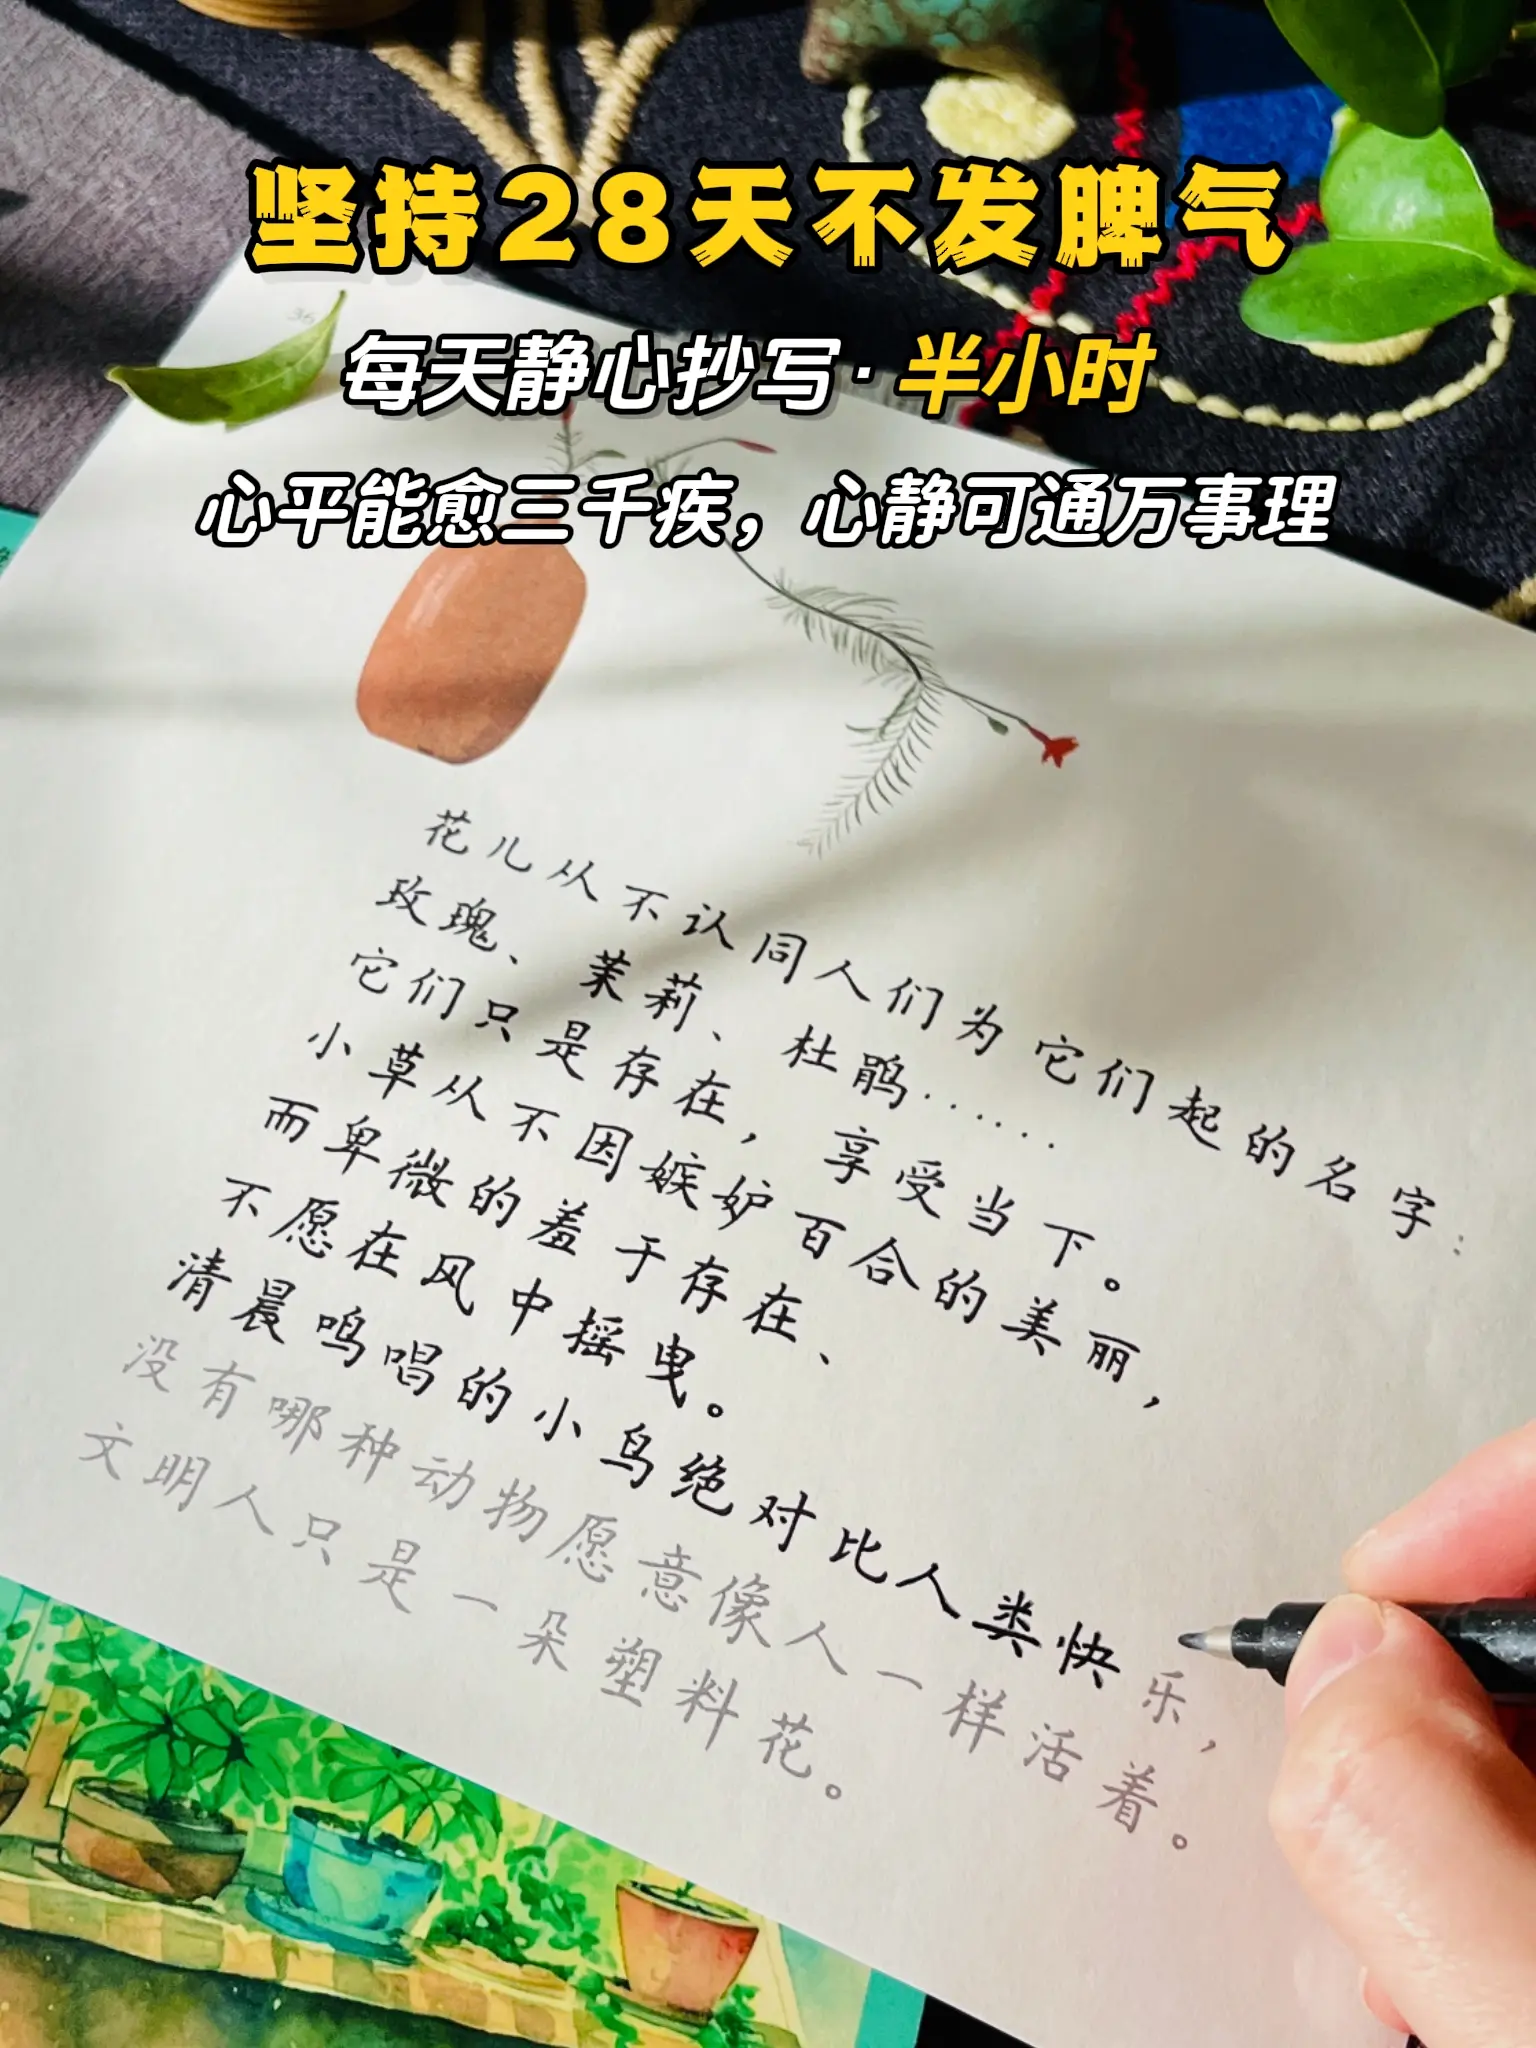 坚持28天不发脾气
每天静心抄写·半小时
心平能愈三千疾，心静可通万事理
36
花儿从不认同人们为它们起的名字：
玫瑰、茉莉、杜鹃……
它们只是存在，享受当下。
小草从不因嫉妒百合的美丽，
而卑微的羞于存在、
不愿在风中摇曳。
清晨鸣唱的小鸟绝对比人类快乐，
没有哪种动物愿意像人一样活着。
文明人只是一朵塑料花。